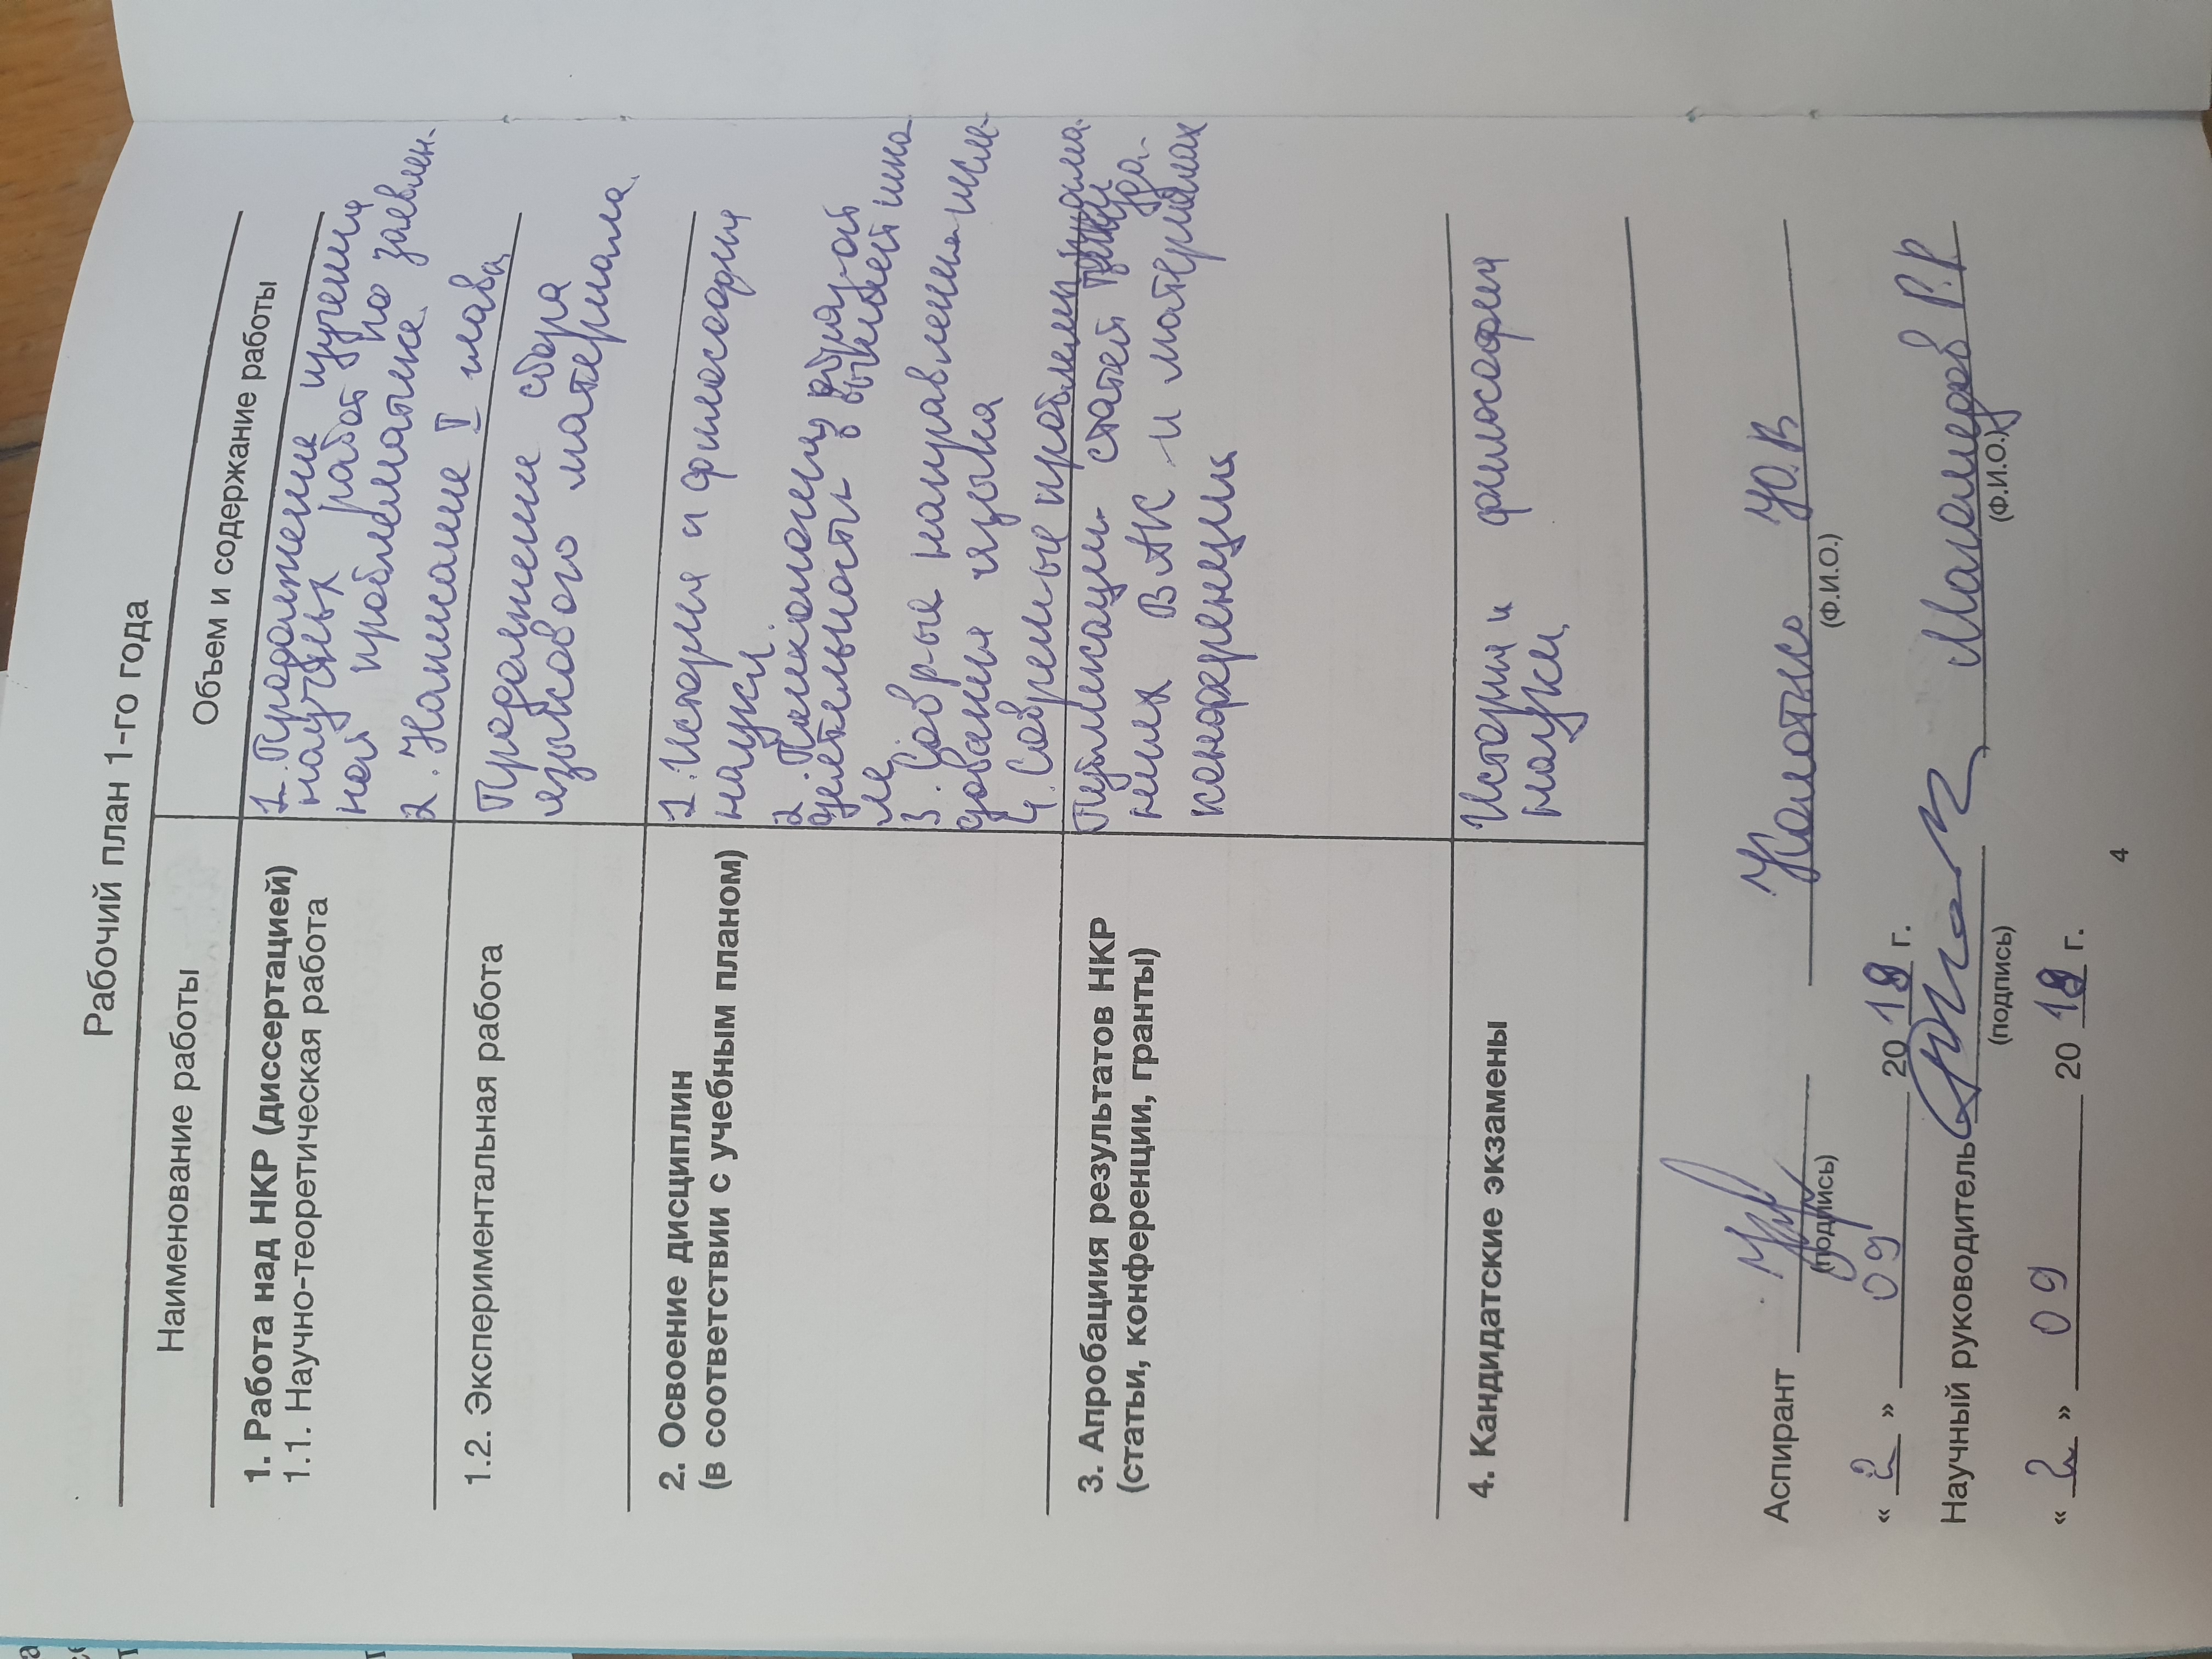 Рабочий план 1-го года
Наименование работы
Объем и содержание работы
1. Работа над НКР (диссертацией)
1.1. Научно-теоретическая работа
1. Продолжение изучения
научных работ по заявлен-
ной проблематике.
2. Написание I главы
1.2. Экспериментальная работа
Продолжение сбора
языкового материала.
2. Освоение дисциплин
(в соответствии с учебным планом)
1. История и философия
науки.
2. Психологиц образ-ой
деятельность в высшей шко
ле
3. Совр-ые направления иссле-
дования языка
4. Совремные проблемы
3. Апробациия результатов НКР
(статьи, конференции, гранты)
Публикации статей
ниях ВАК и материалах
конференциях
4. Кандидатские экзамены
История и философия
науки
Аспирант
Ю.В
(подпись)
(Ф.И.О.)
« 2 » 09 20 19 г.
Научный руководитель
Мамедов Р.Р
(подпись)
(Ф.И.О.)
« 2 » 09 20 19 г.
4